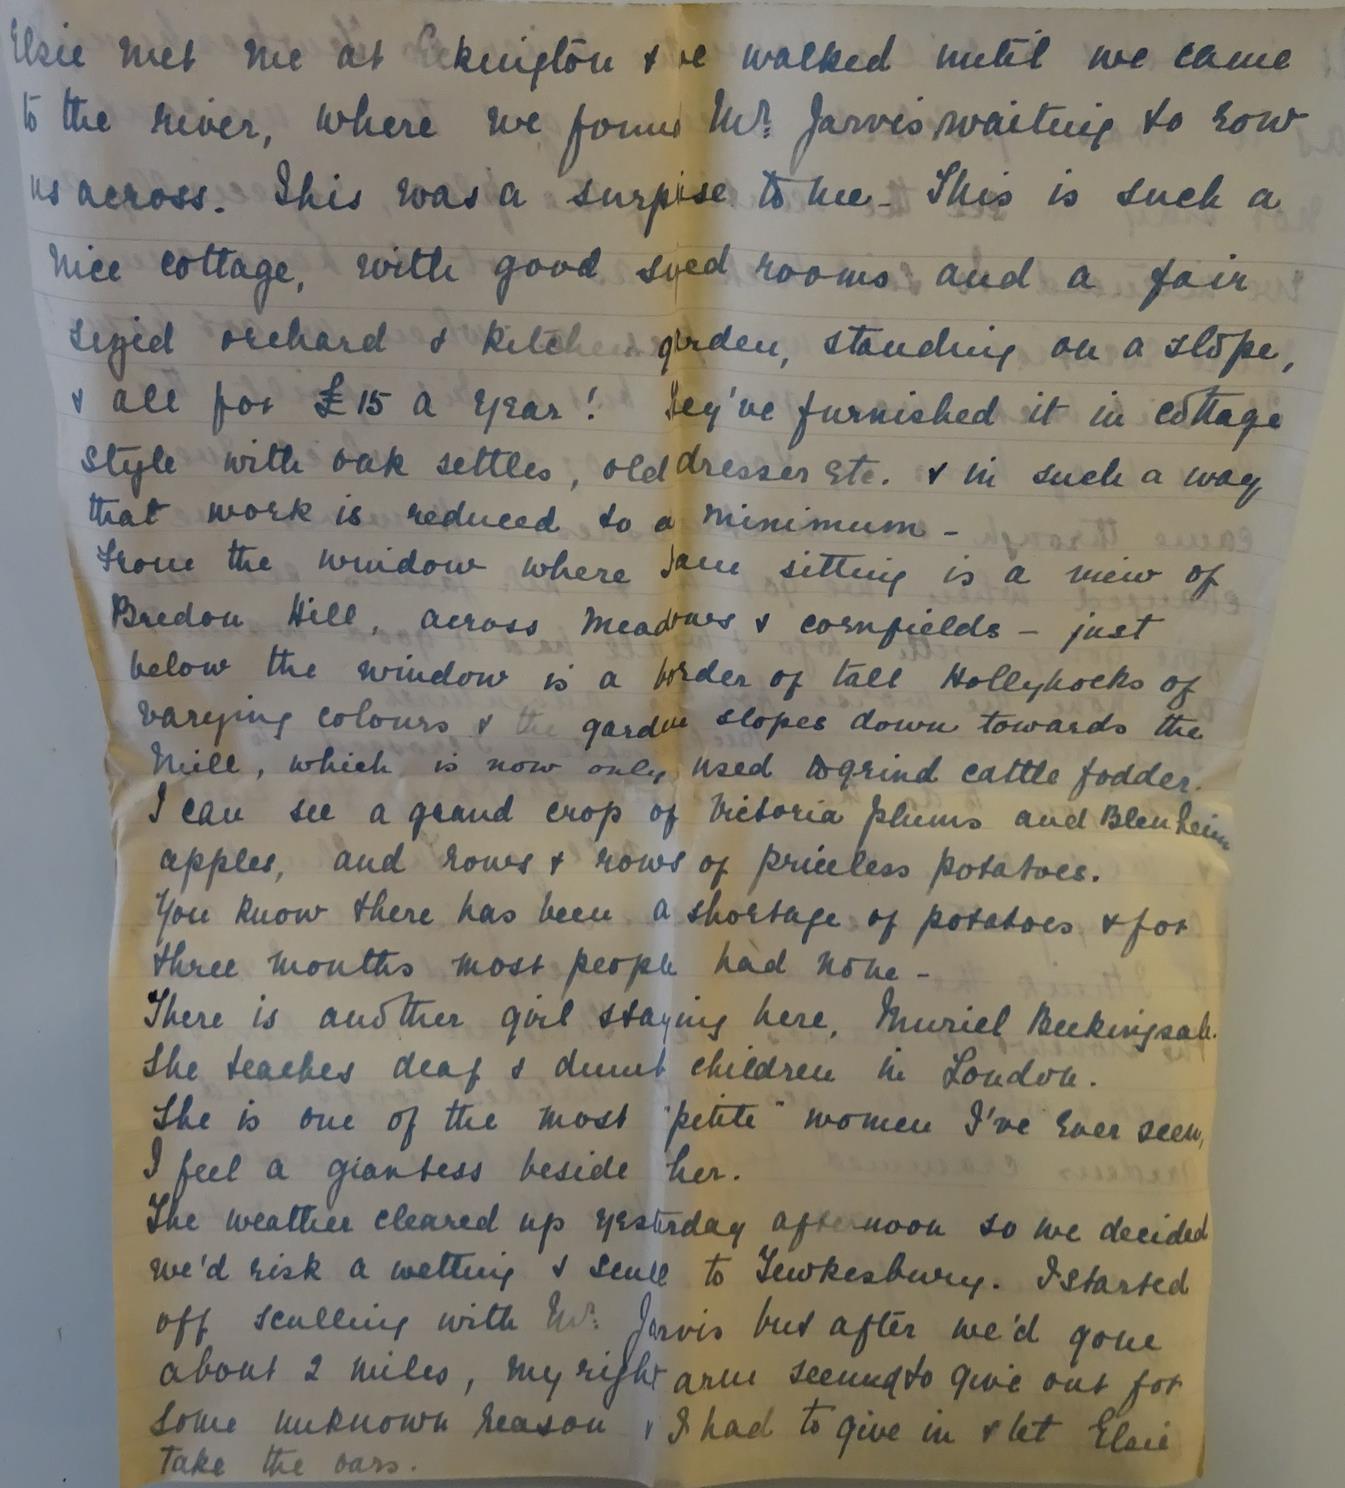 Elsie met me at Eckington & we walked until we came
to the river, where we found Mr. Jarvis waiting to row
us across. This was a surprise to me - This is such a
nice cottage, with good sized rooms and a fair
sized orchard & kitchen garden, standing on a slope,
& all for £15 a year! They've furnished it in cottage
style with oak settles, old dresser etc. & in such a way
that work is reduced to a minimum -
From the window where I am sitting is a view of
Bredon Hill, across meadows & cornfields - just
below the window is a border of tall Hollyhocks of
varying colours & the garden slopes down towards the
Mill, which is now only used to grind cattle fodder.
I can see a grand crop of Victoria plums and Blenheim
apples, and rows & rows of priceless potatoes.
You know there has been a shortage of potatoes, & for
three months most people had none -
There is another girl staying here, Muriel Beckingsale.
She teaches deaf & dumb children in London.
She is one of the most "petite" women I've ever seen,
I feel a giantess beside her.
The weather cleared up yesterday afternoon so we decided
we'd risk a wetting & scull to Tewkesbury. I started
off sculling with Mr. Jarvis but after we'd gone
about 2 miles, my right arm seemed to give out for
some unknown reason & I had to give in & let Elsie
take the oars.